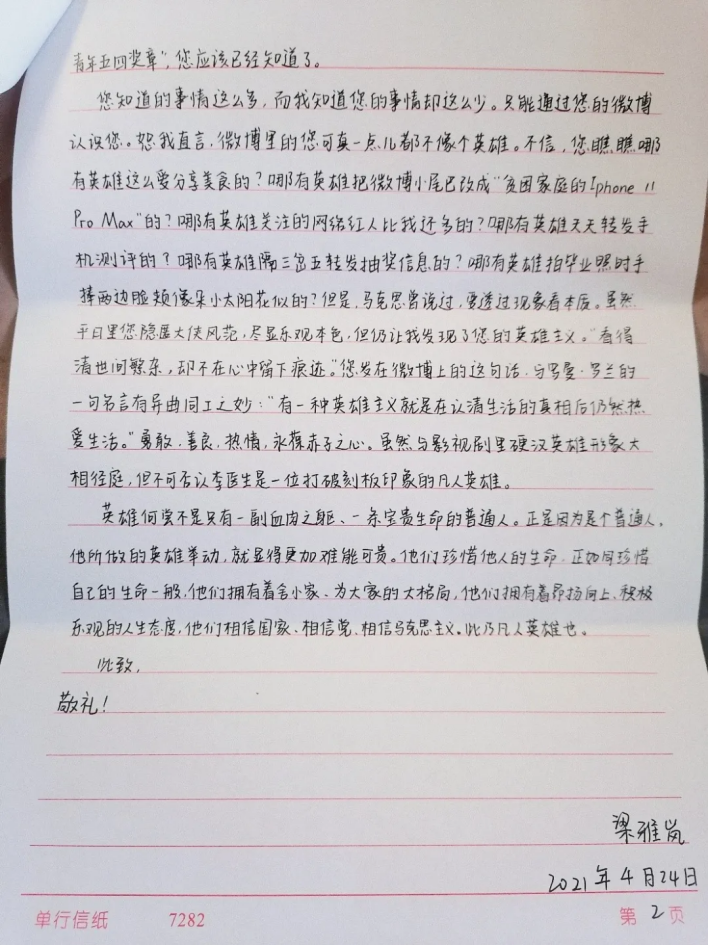 青年五四奖章”,您应该已经知道了。
您知道的事情这么多,而我知道您的事情却这么少。只能通过您的微博
认识您。恕我直言,微博里的您可真一点儿都不像个英雄。不信,您瞧瞧哪
有英雄这么爱分享美食的?哪有英雄把微博小尾巴改成“贫困家庭的Iphone 11
Pro Max”的?哪有英雄关注的网络红人比我还多的?哪有英雄天天转发手
机测评的?哪有英雄隔三岔五转发抽奖信息的?哪有英雄拍毕业照时手
捧两边脸颊像朵小太阳花似的?但是,马克思曾说过,要透过现象看本质。虽然
平日里您隐匿大侠风范,尽显乐观本色,但仍让我发现了您的英雄主义。“看得
清世间繁杂,却不在心中留下痕迹。”您发在微博上的这句话,与罗曼·罗兰的
一句名言有异曲同工之妙:“有一种英雄主义就是在认清生活的真相后仍然热
爱生活。”勇敢、善良、热情,永葆赤子之心。虽然与影视剧里硬汉英雄形象大
相径庭,但不可否认李医生是一位打破刻板印象的凡人英雄。
英雄何尝不是只有一副血肉之躯、一条宝贵生命的普通人。正是因为是个普通人,
他所做的英雄举动,就显得更加难能可贵。他们珍惜他人的生命,正如同珍惜
自己的生命一般,他们拥有着舍小家、为大家的大格局,他们拥有着昂扬向上、积极
乐观的人生态度,他们相信国家、相信党、相信马克思主义。此乃凡人英雄也。
此致,
敬礼!
梁雅岚
2021年4月24日
单行信纸 7282 第2页